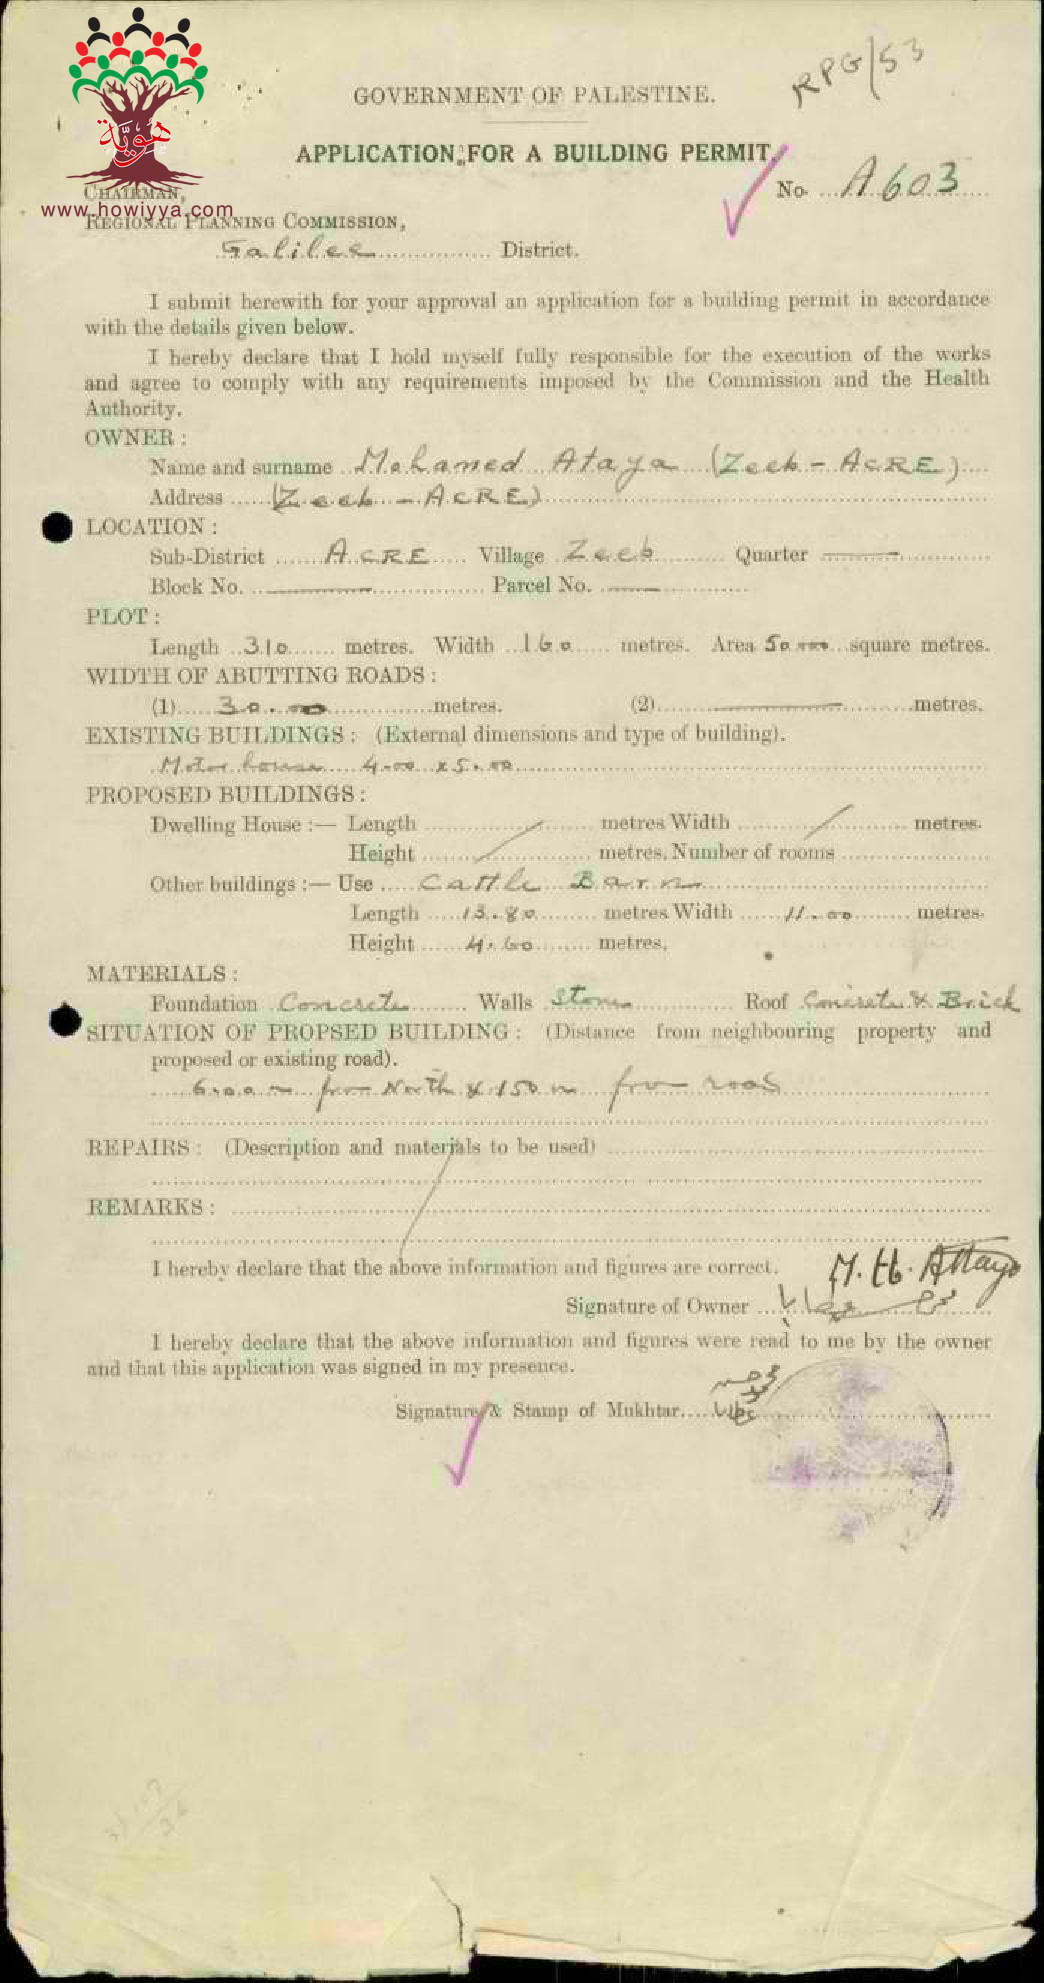 RPG/53
GOVERNMENT OF PALESTINE.
APPLICATION FOR A BUILDING PERMIT.
No. A603
هُويّة
www.howiyya.com
CHAIRMAN,
REGIONAL PLANNING COMMISSION,
Galilee District.
I submit herewith for your approval an application for a building permit in accordance
with the details given below.
I hereby declare that I hold myself fully responsible for the execution of the works
and agree to comply with any requirements imposed by the Commission and the Health
Authority.
OWNER :
Name and surname Mohamed Ataya (Zeeb - ACRE)
Address (Zeeb - ACRE)
LOCATION :
Sub-District ACRE Village Zeeb Quarter
Block No. Parcel No.
PLOT :
Length 310 metres. Width 160 metres. Area square metres.
WIDTH OF ABUTTING ROADS :
(1) 30.00 metres. (2) metres.
EXISTING BUILDINGS : (External dimensions and type of building).
Motor house 4.00 x 5.00
PROPOSED BUILDINGS :
Dwelling House :— Length metres Width metres.
Height metres. Number of rooms
Other buildings :— Use Cattle Barn
Length 13.80 metres Width 11.00 metres.
Height 4.60 metres.
MATERIALS :
Foundation Concrete Walls Stone Roof Concrete & Brick
SITUATION OF PROPSED BUILDING : (Distance from neighbouring property and
proposed or existing road).
6.00 m from North & 150 m from road
REPAIRS : (Description and materials to be used)
REMARKS :
I hereby declare that the above information and figures are correct.
M. H. Attaya
Signature of Owner
I hereby declare that the above information and figures were read to me by the owner
and that this application was signed in my presence.
Signature & Stamp of Mukhtar